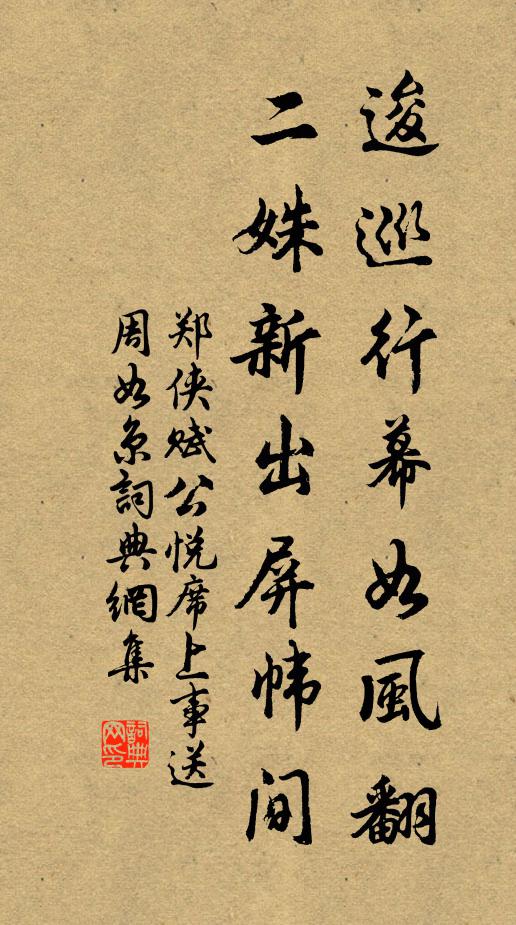 逡巡行幕如風翻
二姝新出屏幃間
郑侠赋公悦席上事送
周如京詞典網集
詞典
网印